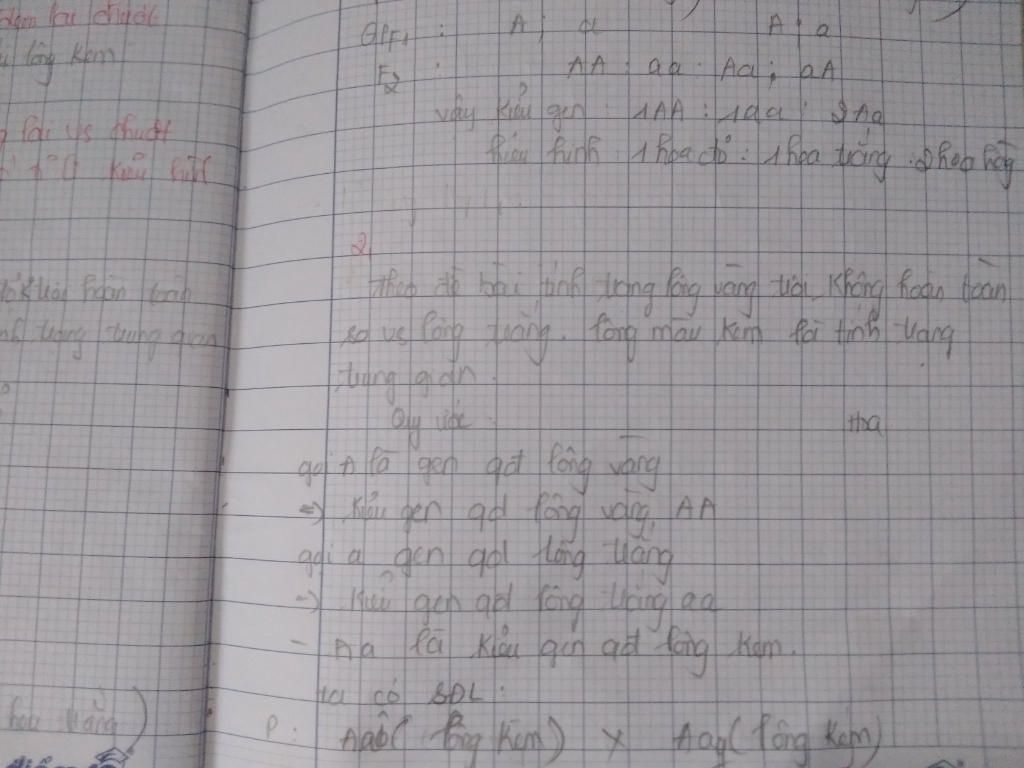 lai chuột
lông kem
lai vs chuột
tỉ lệ kiểu hình
trội hoàn toàn
trạng trung gian
hoa trắng)
GPF1 : A ; a A ; a
F2 : AA : aa : Aa ; aA
vậy kiểu gen : 1AA : 1aa : 2Aa
kiểu hình 1 hoa đỏ : 1 hoa trắng : 2 hoa hồng
2,
theo đề bài, tính trạng lông vàng trội không hoàn toàn
so vs lông trắng. lông màu kem là tính trạng
trung gian.
Quy ước :
gọi A là gen qđ lông vàng
=> kiểu gen qđ lông vàng, AA
gọi a gen qđ lông trắng
-> kiểu gen qđ lông trắng aa
- Aa là kiểu gen qđ lông kem.
ta có SĐL :
P : Aa ( lông kem) x Aa ( lông kem)